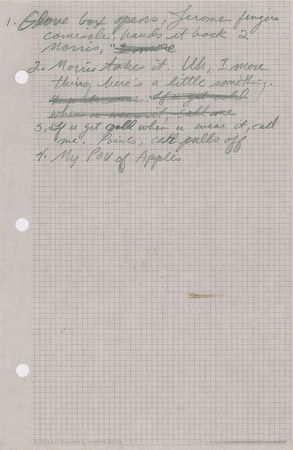 1. Glove box opens, Jerome fingers
camisole, hands it back 2
Morris, "
2. Morris takes it. Uh, 1 more
thing here's a little something.
If u get cold
when u wear it call me
3. If u get cold when u wear it, call
me. Points, car pulls off
4. My POV of Apples